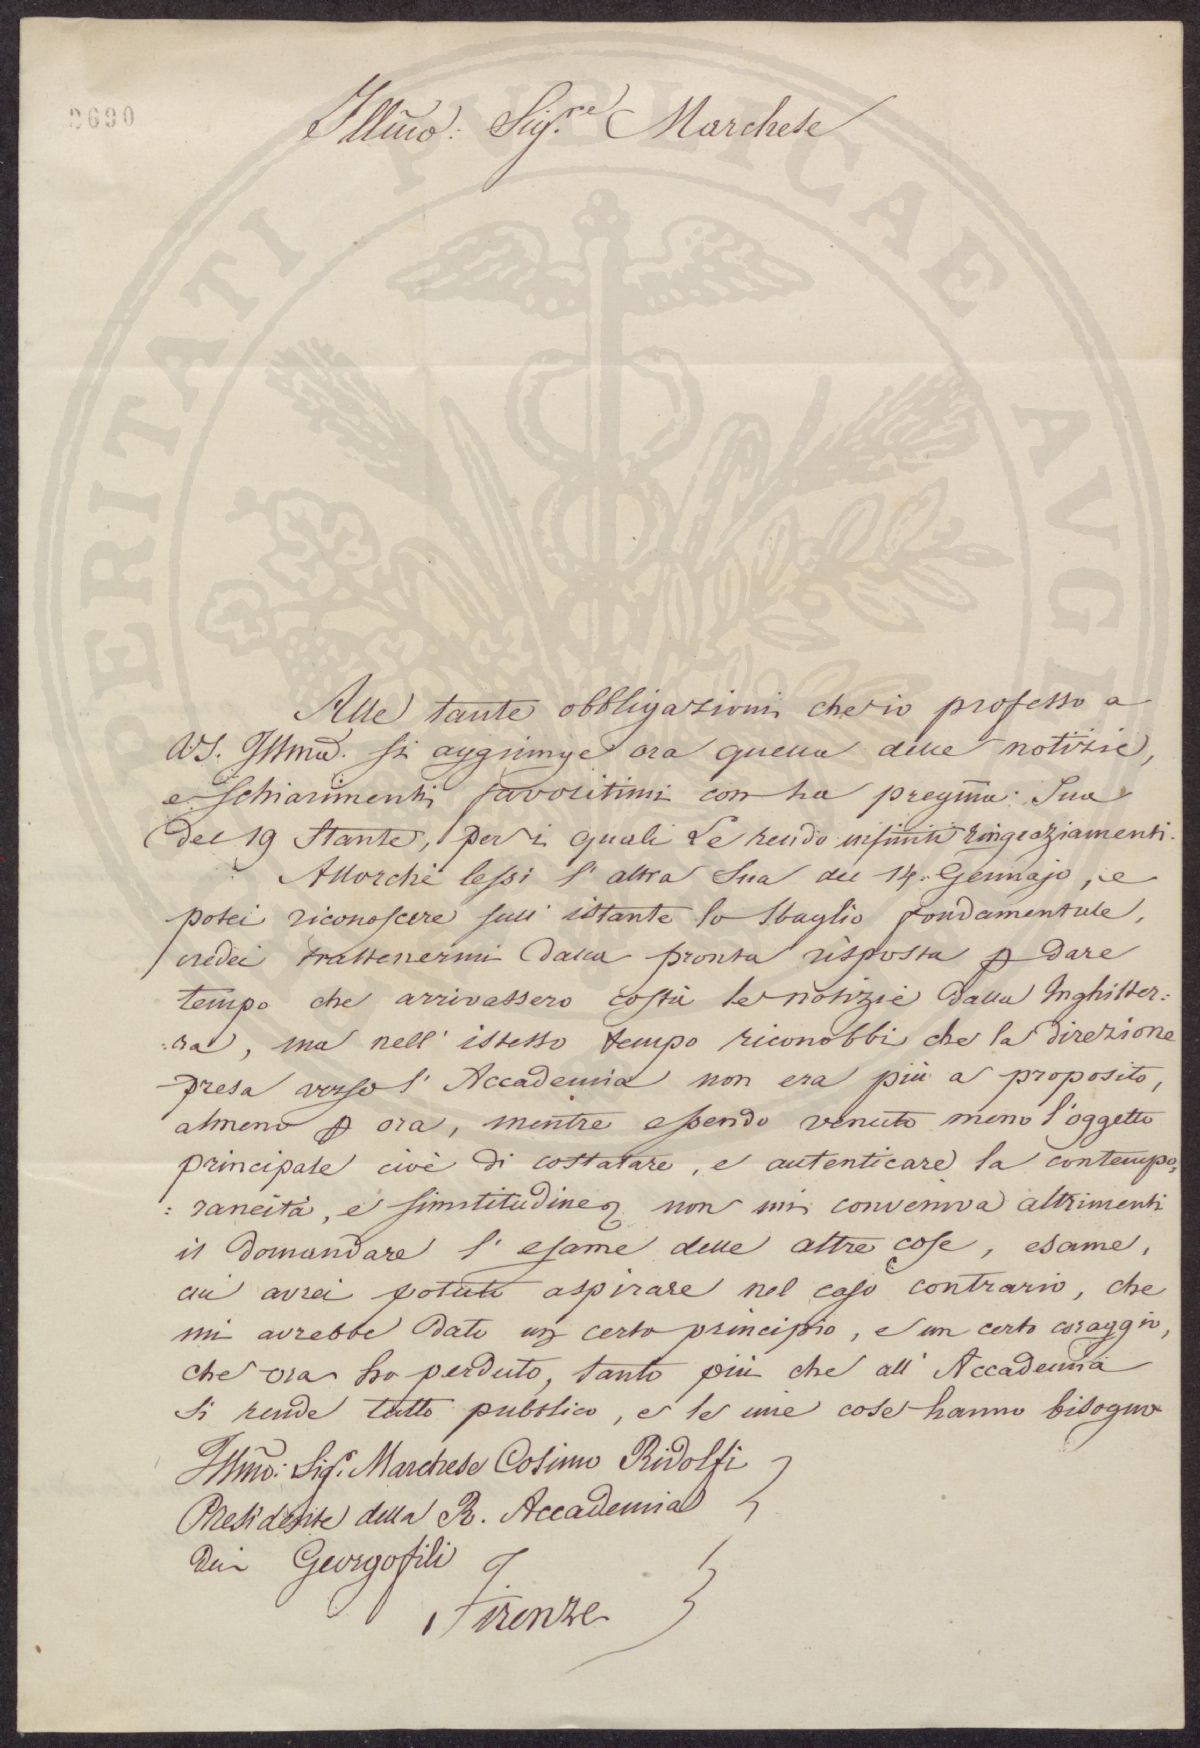 3690
Illmo: Sig.re Marchese
PROSPERITATI PUBLICAE AVGE
Alle tante obbligazioni che io professo a
VS. Illma. si aggiunge ora quella delle notizie,
e schiarimenti favoritimi con la pregma: Sua
del 19 Stante, per i quali Le rendo infiniti ringraziamenti.
Allorché lessi l'altra Sua del 14. Gennajo, e
potei riconoscere sull'istante lo sbaglio fondamentale,
credei trattenermi dalla pronta risposta p dare
tempo che arrivassero costà le notizie dalla Inghilter:
:ra, ma nell'istesso tempo riconobbi che la direzione
presa verso l'Accademia non era più a proposito,
almeno p ora, mentre essendo venuto meno l'oggetto
principale cioè di costatare, e autenticare la contempo:
:raneità, e similitudine non mi conveniva altrimenti
il domandare l'esame delle altre cose, esame,
cui avrei potuto aspirare nel caso contrario, che
mi avrebbe dato un certo principio, e un certo coraggio,
che ora ho perduto, tanto più che all'Accademia
si rende tutto pubblico, e le mie cose hanno bisogno
Illmo: Sig.r Marchese Cosimo Ridolfi
Presidente della R. Accademia
dei Georgofili
Firenze